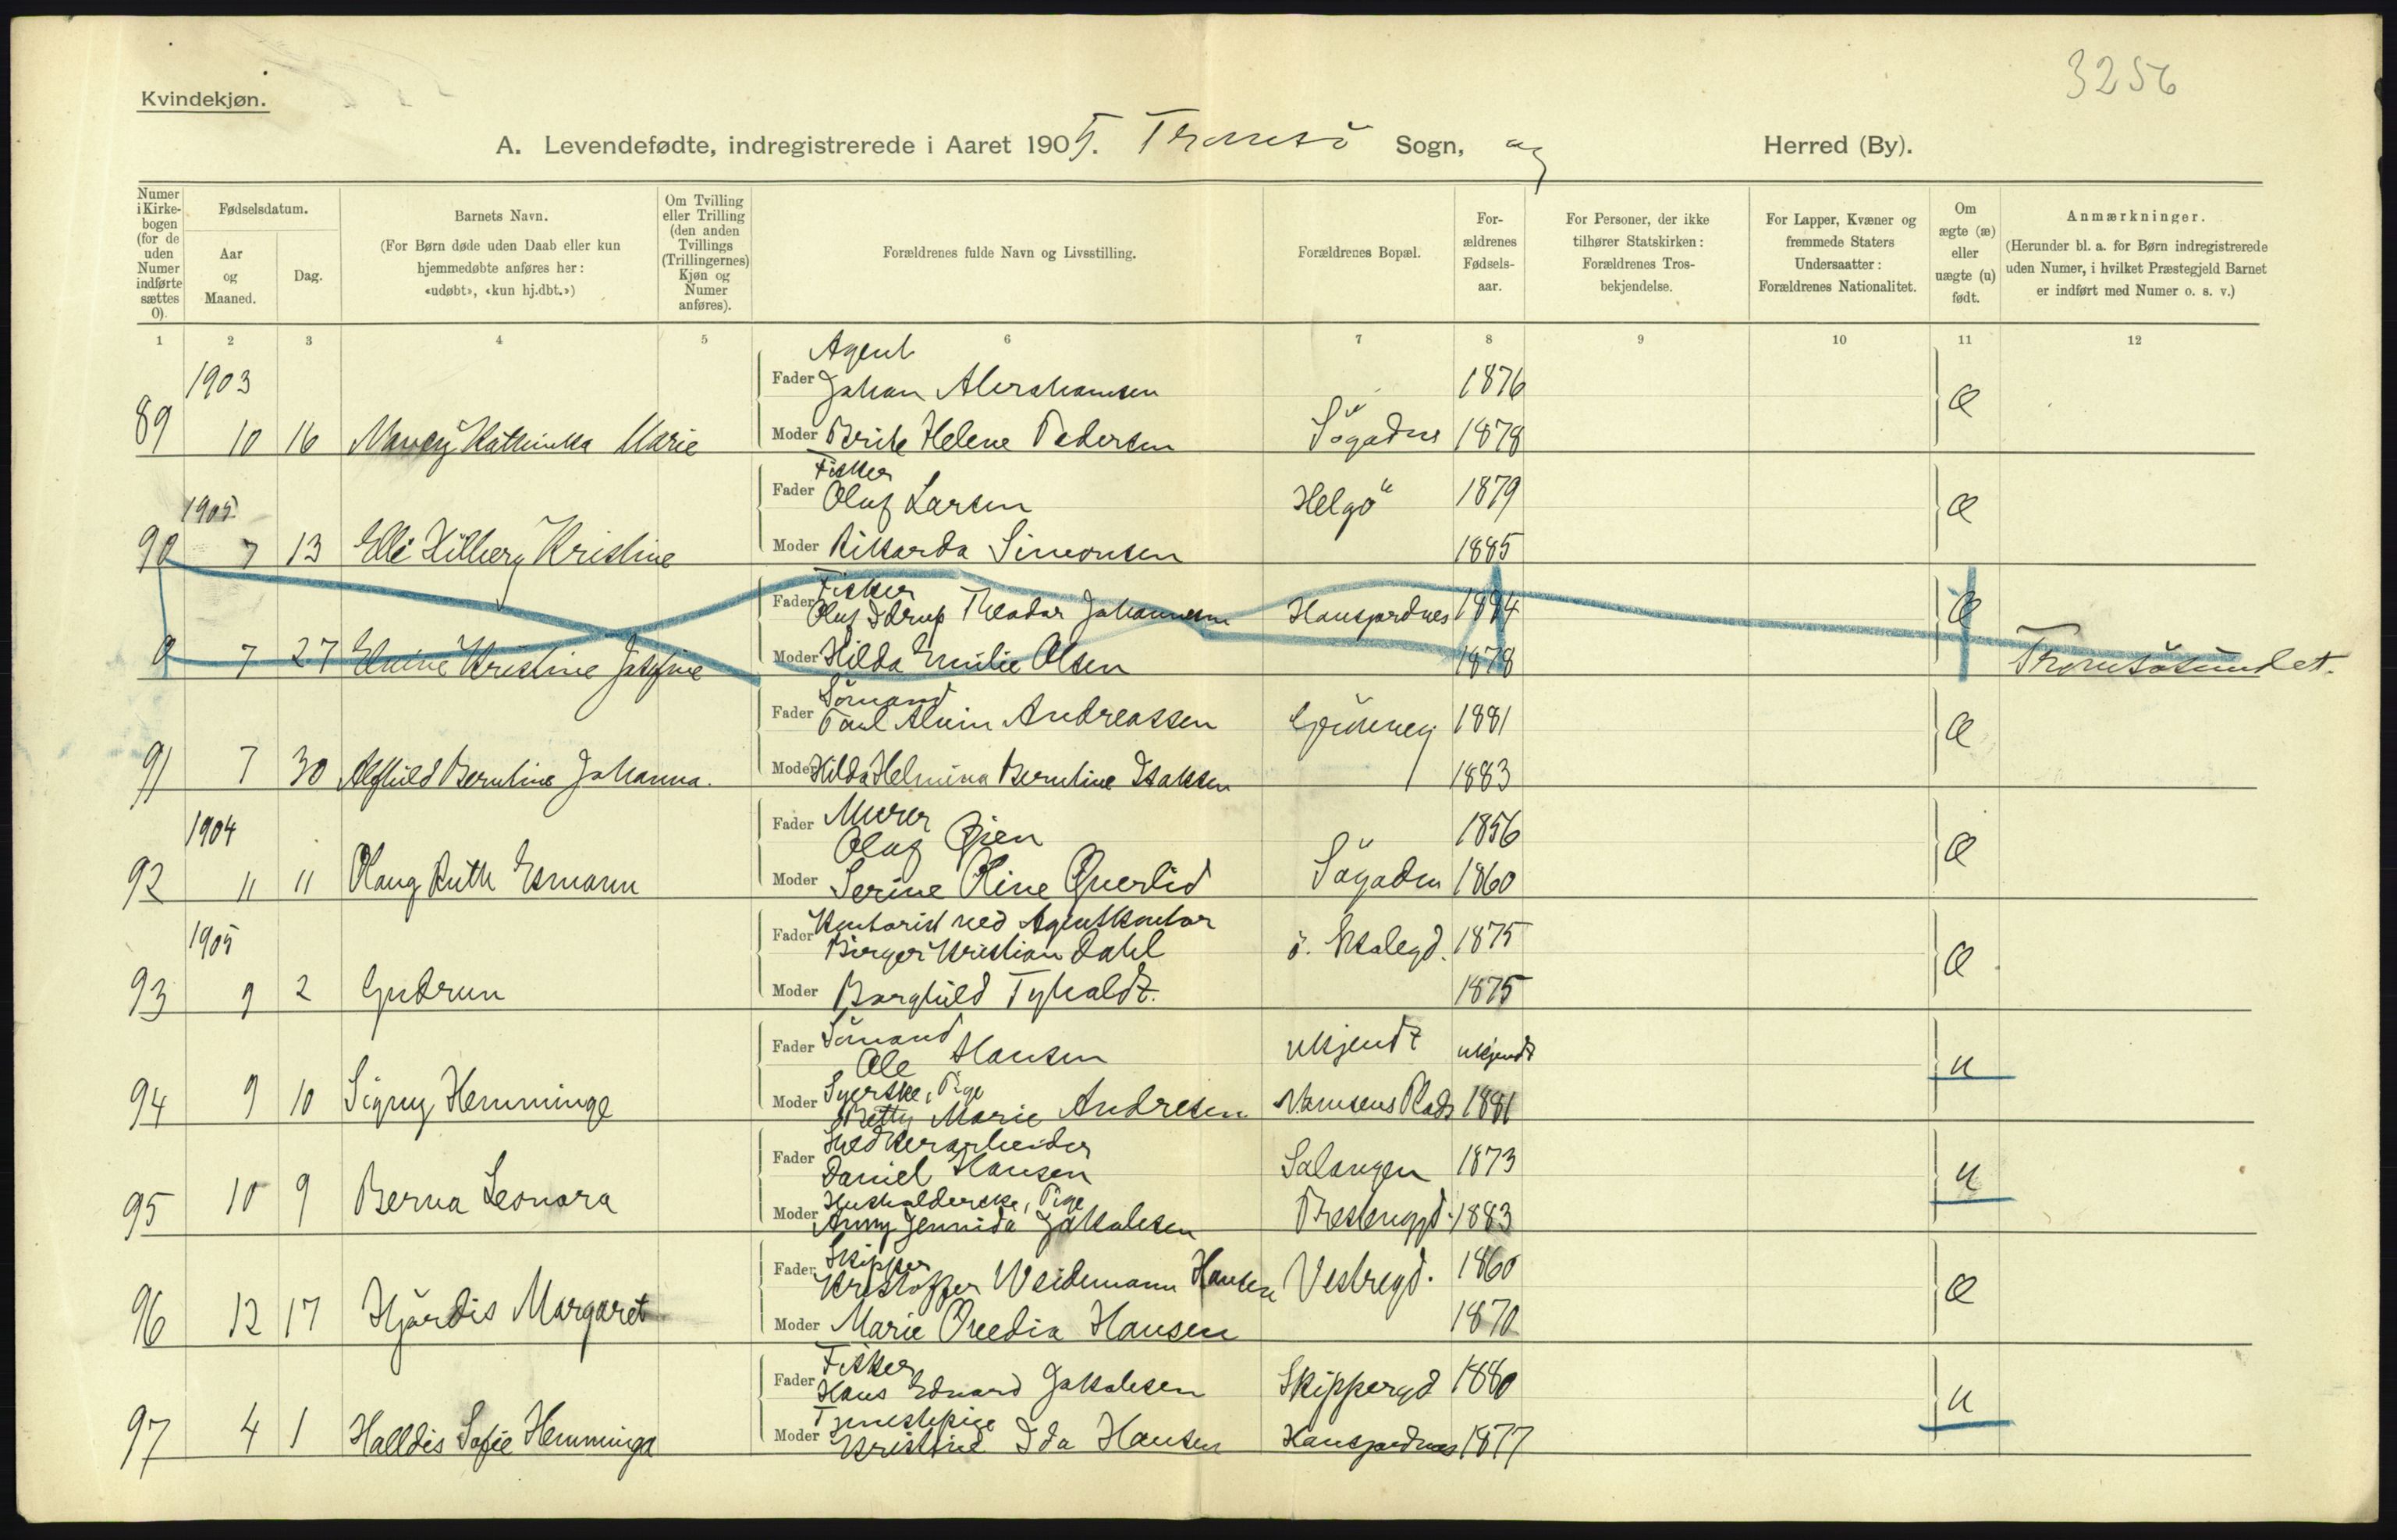 3256
Kvindekjøn.
A. Levendefødte, indregistrerede i Aaret 1905. Tromsö Sogn, og Herred (By).
Numer i Kirkebogen (for de uden Numer indførte sættes 0).
Fødselsdatum.
Aar og Maaned.
Dag.
Barnets Navn.
(For Børn døde uden Daab eller kun hjemmedøbte anføres her: «udøbt», «kun hj.dbt.»)
Om Tvilling eller Trilling (den anden Tvillings (Trillingernes) Kjøn og Numer anføres).
Forældrenes fulde Navn og Livsstilling.
Forældrenes Bopæl.
Forældrenes Fødselsaar.
For Personer, der ikke tilhører Statskirken: Forældrenes Trosbekjendelse.
For Lapper, Kvæner og fremmede Staters Undersaatter: Forældrenes Nationalitet.
Om ægte (æ) eller uægte (u) født.
Anmærkninger.
(Herunder bl. a. for Børn indregistrerede uden Numer, i hvilket Præstegjeld Barnet er indført med Numer o. s. v.)
1 2 3 4 5 6 7 8 9 10 11 12
Agent
1903 Fader Johan Abrahamsen 1876 Æ
89 10 16 Nancy Kathinka Marie Moder Brite Helene Pedersen Sögaden 1878
Fisker
1905 Fader Oluf Larsen Helgö 1879 Æ
90 7 13 Elli Kilberg Kristine Moder Rikarda Simonsen 1885
Fisker
Fader Oluf Idrup Theodor Johannesen Hansjordnes 1884 Æ
0 7 27 Kristine Josefine Moder Hilda Emilie Olsen 1878 Tromsösundet.
Sömand
Fader Paul Alvin Andreassen Grönneg 1881 Æ
91 7 30 Alfhild Berntine Johanna. Moder Hilda Helmina Berntine Isaksen 1883
1904 Fader Murer 1856 Æ
Oluf Øien
92 11 11 Olaug Ruth Esmann Moder Serine Oline Querlid Sögaden 1860
Kontorist ved Agentkontor
1905 Fader Birger Kristian Dahl ö. Skolegd. 1875 Æ
93 9 2 Gudrun Moder Borghild Tyholdt. 1875
Fader Sömand ukjendt ukjendt u
Ole Hansen
Syerske, Pige
94 9 10 Signy Hemminge Moder Betty Marie Andresen Plads 1881
Fader Daniel Hansen Salangen 1873 u
Husholderske, Pige
95 10 9 Berna Leonora Moder Anny Jennida Jakobsen 1883
Skipper
Fader Kristoffer Weidemann Hansen Vestregd. 1860 Æ
96 12 17 Hjördis Margaret Moder Marie Ovedia Hansen 1870
Fisker
Fader Hans Edvard Jakobsen Skippergd 1880 u
Tjenestepige
97 4 1 Halldis Sofie Hemminga Moder Kristine Ida Hansen Hansjordnes 1877